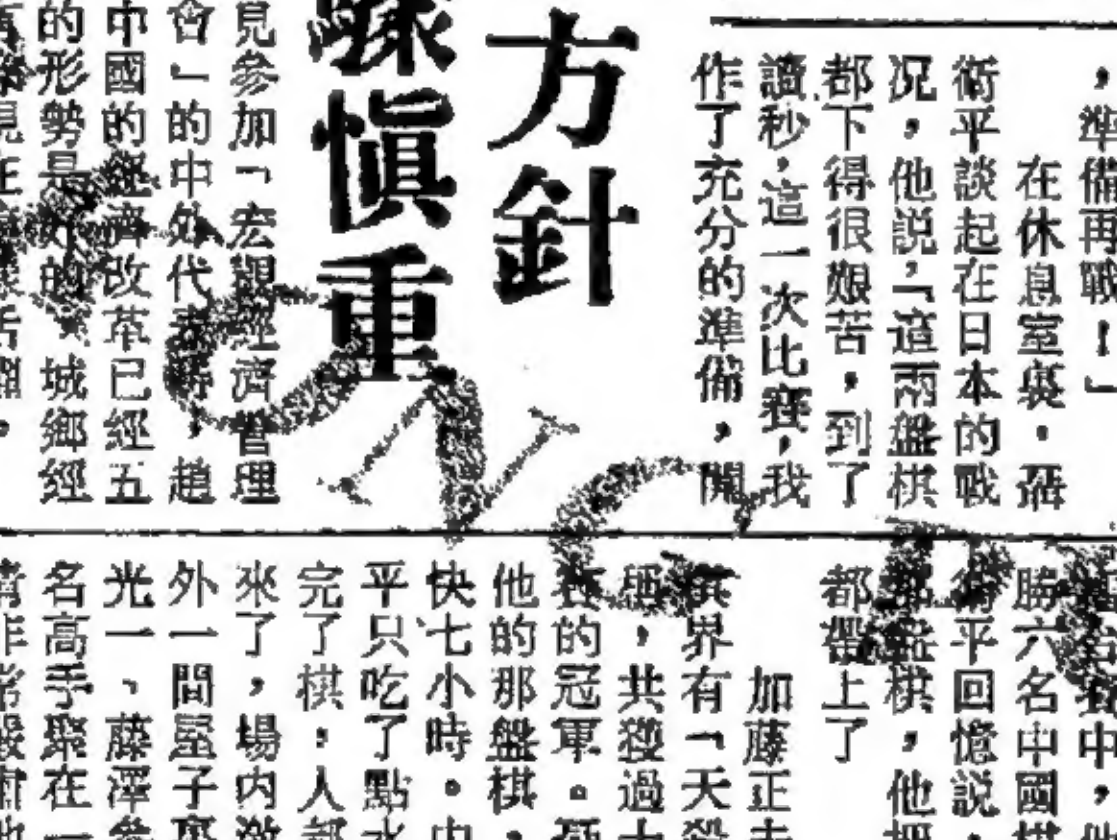 ，準備再戰！」
在休息室裏，聶
衛平談起在日本的戰
况，他説，「這兩盤棋
都下得很艱苦，到了
讀秒，這一次比賽，我
作了充分的準備，開
方針
慎重
見參加「宏觀經濟管理
會」的中外代表時，趙
中國的經濟改革已經五
的形勢是好的，城鄉經
中，
勝六名中國
衛平回憶説，
棋，他把
都帶上了
加藤正夫
棋界有「天殺
，共獲過
的冠軍。聶
他的那盤棋，
快七小時。中
平只吃了點水
完了棋：人都
來了，場内激
外一間屋子裏
光一、藤澤
名高手聚在一
濟非常嚴肅地